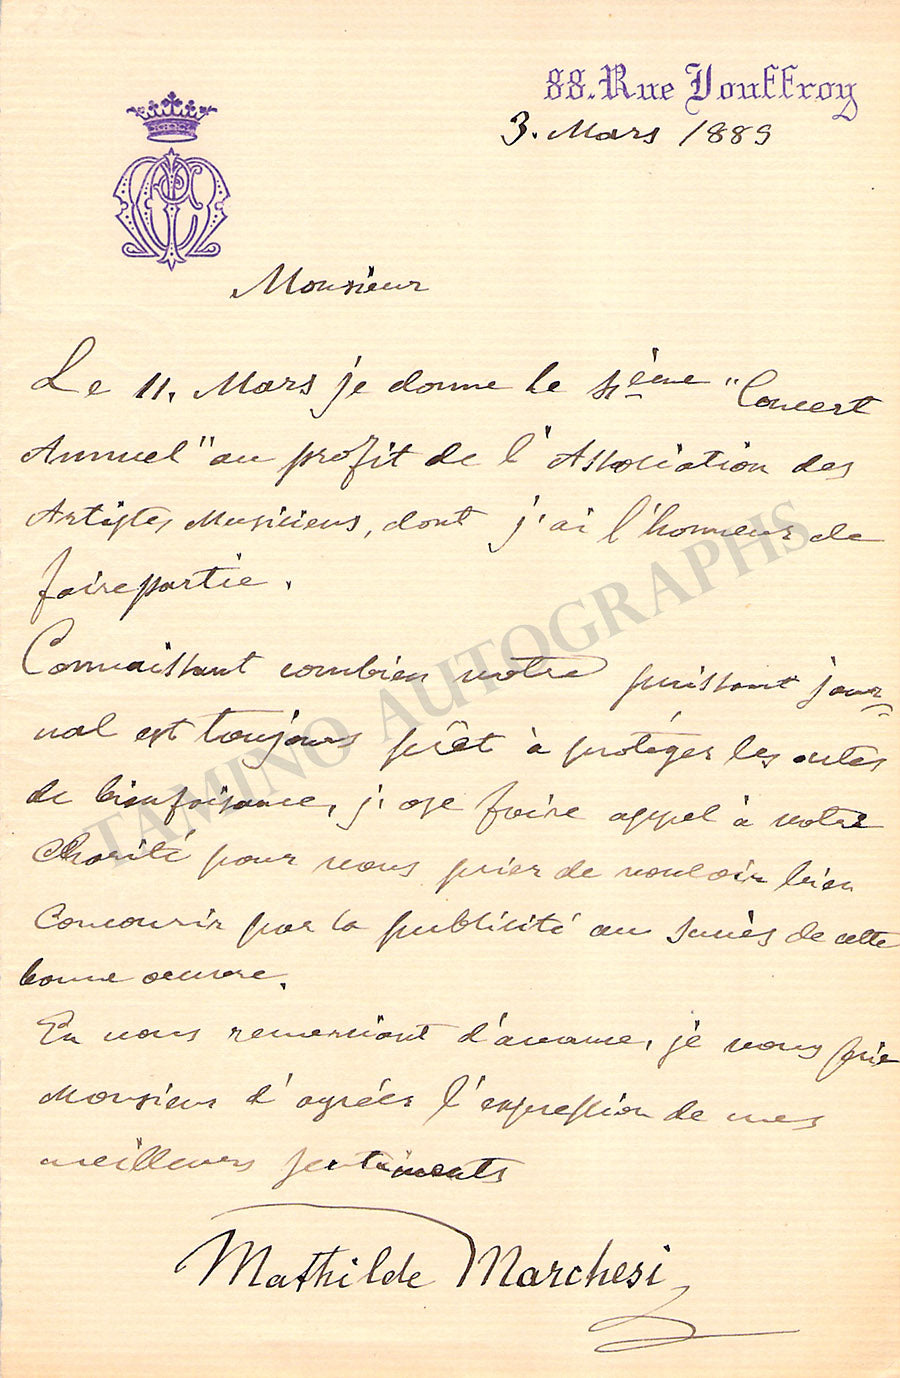 88. Rue Jouffroy
3. Mars 1889
Monsieur
Le 11. Mars je donne le ième "Concert
Annuel" au profit de l'Association des
Artistes Musiciens, dont j'ai l'honneur de
faire partie.
Connaissant combien votre puissant jour=
nal est toujours prêt à protéger les actes
de bienfaisance, j'ose faire appel à votre
Charité pour vous prier de vouloir bien
concourir par la publicité au succès de cette
bonne oeuvre.
En vous remerciant d'avance, je vous prie
Monsieur d'agréer l'expression de mes
meilleurs sentiments
Mathilde Marchesi
TAMINO AUTOGRAPHS